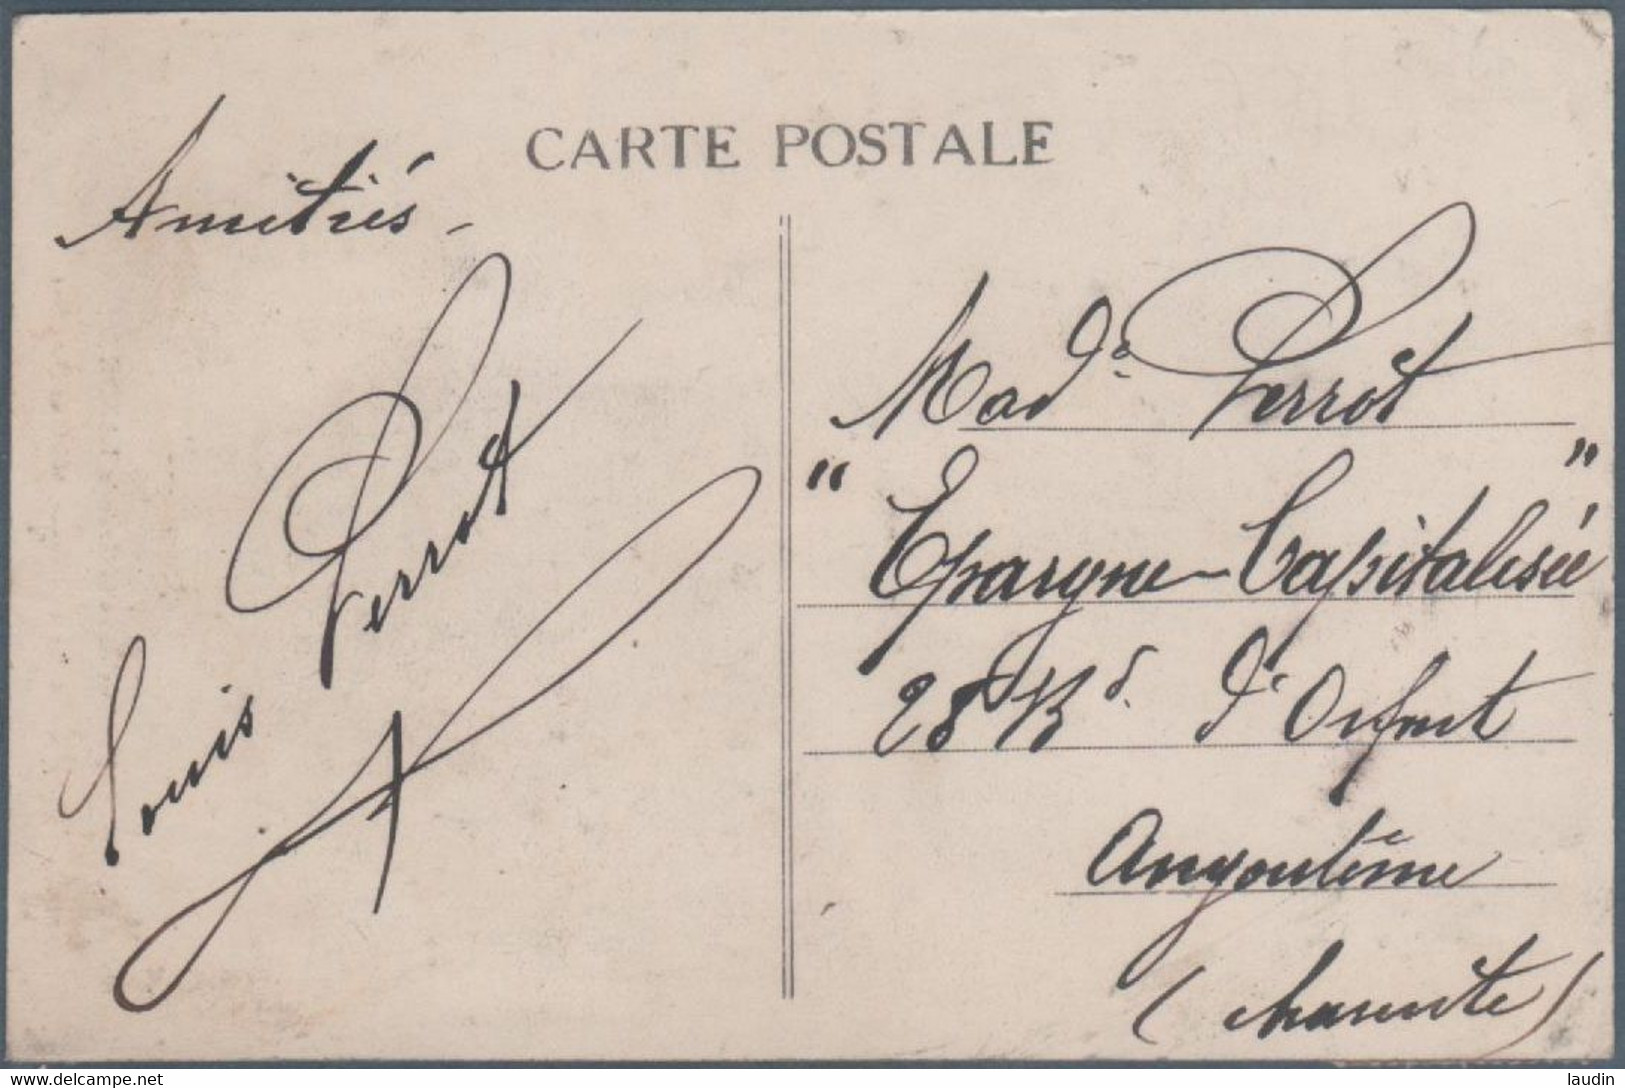 CARTE POSTALE
Amitiés -
Louis Perrot
Made Perrot
" Epargne - Capitalisée "
28 Bd. de
Angoulême
(Charente)
www.delcampe.net
laudin